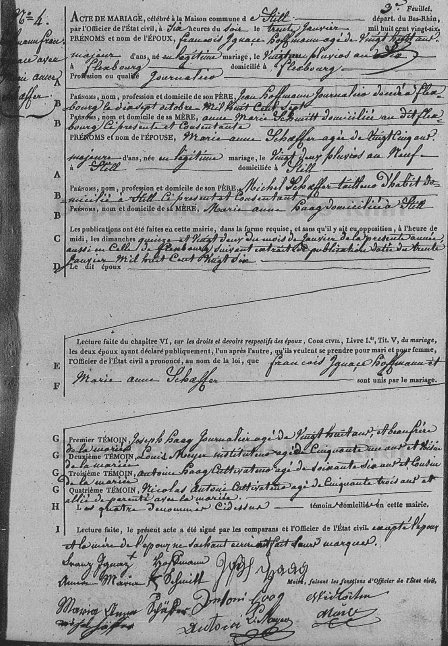 2e Feuillet.
No 4.
ACTE DE MARIAGE, célébré à la Maison commune d Still départ. du Bas-Rhin,
par l'Officier de l'État civil, à Six heures du Soir le trente Janvier mil huit cent vingt-six
PRÉNOMS et NOM de l'ÉPOUX, François Ignace Hoffmann agé de Vingt huit ans
majeur d'ans, né en légitime mariage, le Vingt un pluviose an Six
à Flexbourg domicilié à Flexbourg
Profession ou qualité Journalier
A
PRÉNOMS, nom, profession et domicile de son PÈRE, Jean Hoffmann Journalier décédé a Flex
B
bourg le dix sept octobre Mil huit Cent Sept
PRÉNOMS, nom et domicile de sa MÈRE, anne Marie Schmitt domiciliée au dit Flex
B
bourg ci présente et Consentante
PRÉNOMS et NOM de l'ÉPOUSE, Marie anne Schaffer agée de Vingt Cinq ans
majeure d'ans, née en légitime mariage, le Vingt deux pluviose an Neuf
à Still domiciliée à Still
A
PRÉNOMS, nom, profession et domicile de son PÈRE, Michel Schaffer tailleur d'habit do
B
micilié à Still ci présent et Consentant
PRÉNOMS, nom et domicile de sa MÈRE, Marie anne Haag domiciliée à Still
B
Les publications ont été faites en cette mairie, dans la forme requise, et sans qu'il y ait eu opposition, à l'heure de
C
midi, les dimanches quinze et Vingt deux du mois de Janvier de la présente année
aussi en Celle de Flexbourg suivant extrait de publication datée du trente
C
Janvier Mil huit Cent Vingt Six
D
Le dit époux
Lecture faite du chapitre VI, sur les droits et devoirs respectifs des époux, CODE CIVIL, Livre I.er, Tit. V, du mariage,
les deux époux ayant déclaré publiquement, l'un après l'autre, qu'ils veulent se prendre pour mari et pour femme,
l'Officier de l'État civil a prononcé, au nom de la loi, que François Ignace Hoffmann et
E
Marie anne Schaffer sont unis par le mariage.
F
G
Premier TÉMOIN, Joseph Haag Journalier agé de Vingt huit ans, et beau frère
de la mariée
G
Deuxième TÉMOIN, Louis Meyer instituteur agé de Cinquante un ans et Voisin
de la mariée
G
Troisième TÉMOIN, antoine Haag Cultivateur agé de soixante six ans et Cousin
de la mariée
G
Quatrième TÉMOIN, Nicolas Antoni Cultivateur agé de Cinquante trois ans et
allié de parenté avec la mariée.
H
Les quatre dénommés Cidessus témoins domiciliés en cette mairie.
I
Lecture faite, le présent acte a été signé par les comparans et l'Officier de l'État civil, excepté l'époux
et la mère de l'époux ne sachant écrire ont fait leurs marques.
Franz Ignaz Hoffmann
Anna Maria Schmitt
Maire, faisant les fonctions d'Officier de l'État civil,
Maria Anna Schäffer Antoni Haag
Antoni L. Meyer Maire